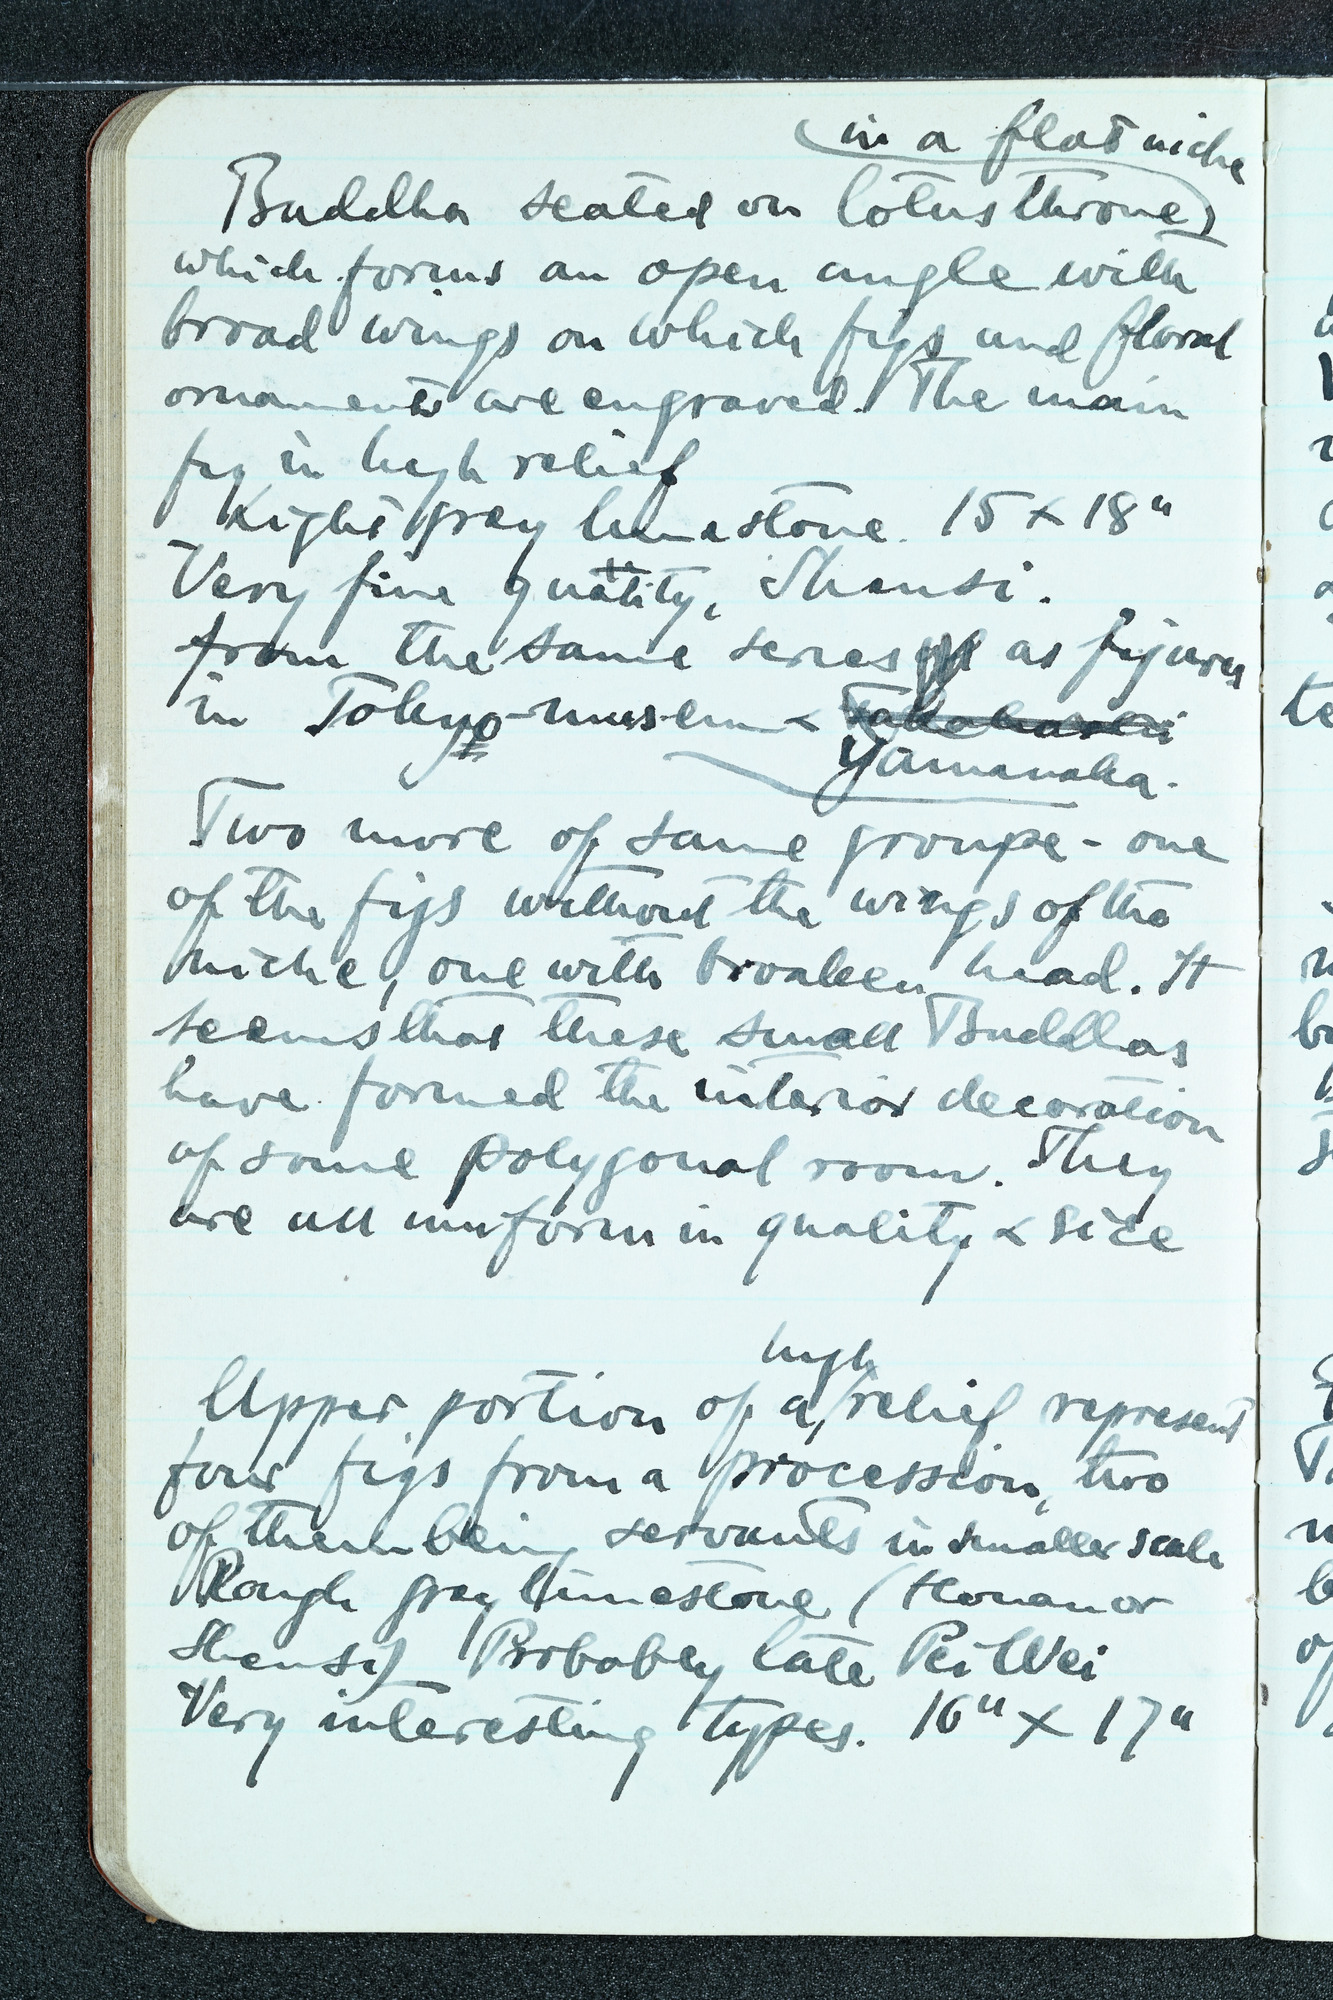 in a flat niche
Buddha seated on lotus throne
which forms an open angle with
broad wings on which figs and floral
ornaments are engraved. The main
fig in high relief
Light gray limestone. 15 x 18"
Very fine quality, Shensi.
from the same series as figures
in Tokyo-museum & Takahashi
Yamanaka.
Two more of same groupe - one
of the figs without the wings of the
niche, one with broaken head. It
seems that these small Buddhas
have formed the interior decoration
of some polygonal room. They
are all uniform in quality & size
high
Upper portion of a relief represent
four figs from a procession, two
of them being servants in smaller scale
Rough gray limestone (Honan or
Shensi) Probably late Pei Wei
Very interesting types. 16" x 17"